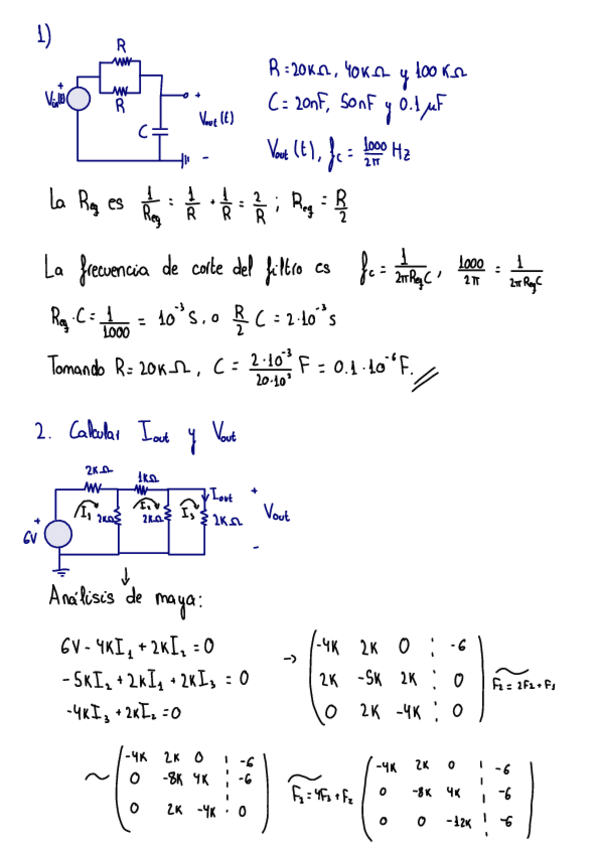 1)
R
R
Vin(t)
+
C
+
Vout (t)
-
R=20KΩ, 40KΩ y 100KΩ
C=20nF, 50nF y 0.1 μF
Vout (t), fc = 1000/2π Hz
La Req es 1/Req = 1/R + 1/R = 2/R ; Req = R/2
La frecuencia de corte del filtro es fc = 1/2πReqC, 1000/2π = 1/2πReqC
Req·C = 1/1000 = 10⁻³ s, o R/2 C = 2·10⁻³ s
Tomando R=20KΩ, C = 2·10⁻³/20·10³ F = 0.1·10⁻⁶ F.
2. Calcular Iout y Vout
2KΩ
1KΩ
Iout
+
6V
+
I₁
2KΩ
I₂
2KΩ
I₃
2KΩ
Vout
-
Análisis de maya:
6V - 4KI₁ + 2KI₂ = 0
-5KI₂ + 2KI₁ + 2KI₃ = 0
-4KI₃ + 2KI₂ = 0
→
-4K 2K 0 ¦ -6
2K -5K 2K ¦ 0
0 2K -4K ¦ 0
F₂=2F₂+F₁
~
-4K 2K 0 ¦ -6
0 -8K 4K ¦ -6
0 2K -4K ¦ 0
F₃=4F₃+F₂
-4K 2K 0 ¦ -6
0 -8K 4K ¦ -6
0 0 -12K ¦ -6